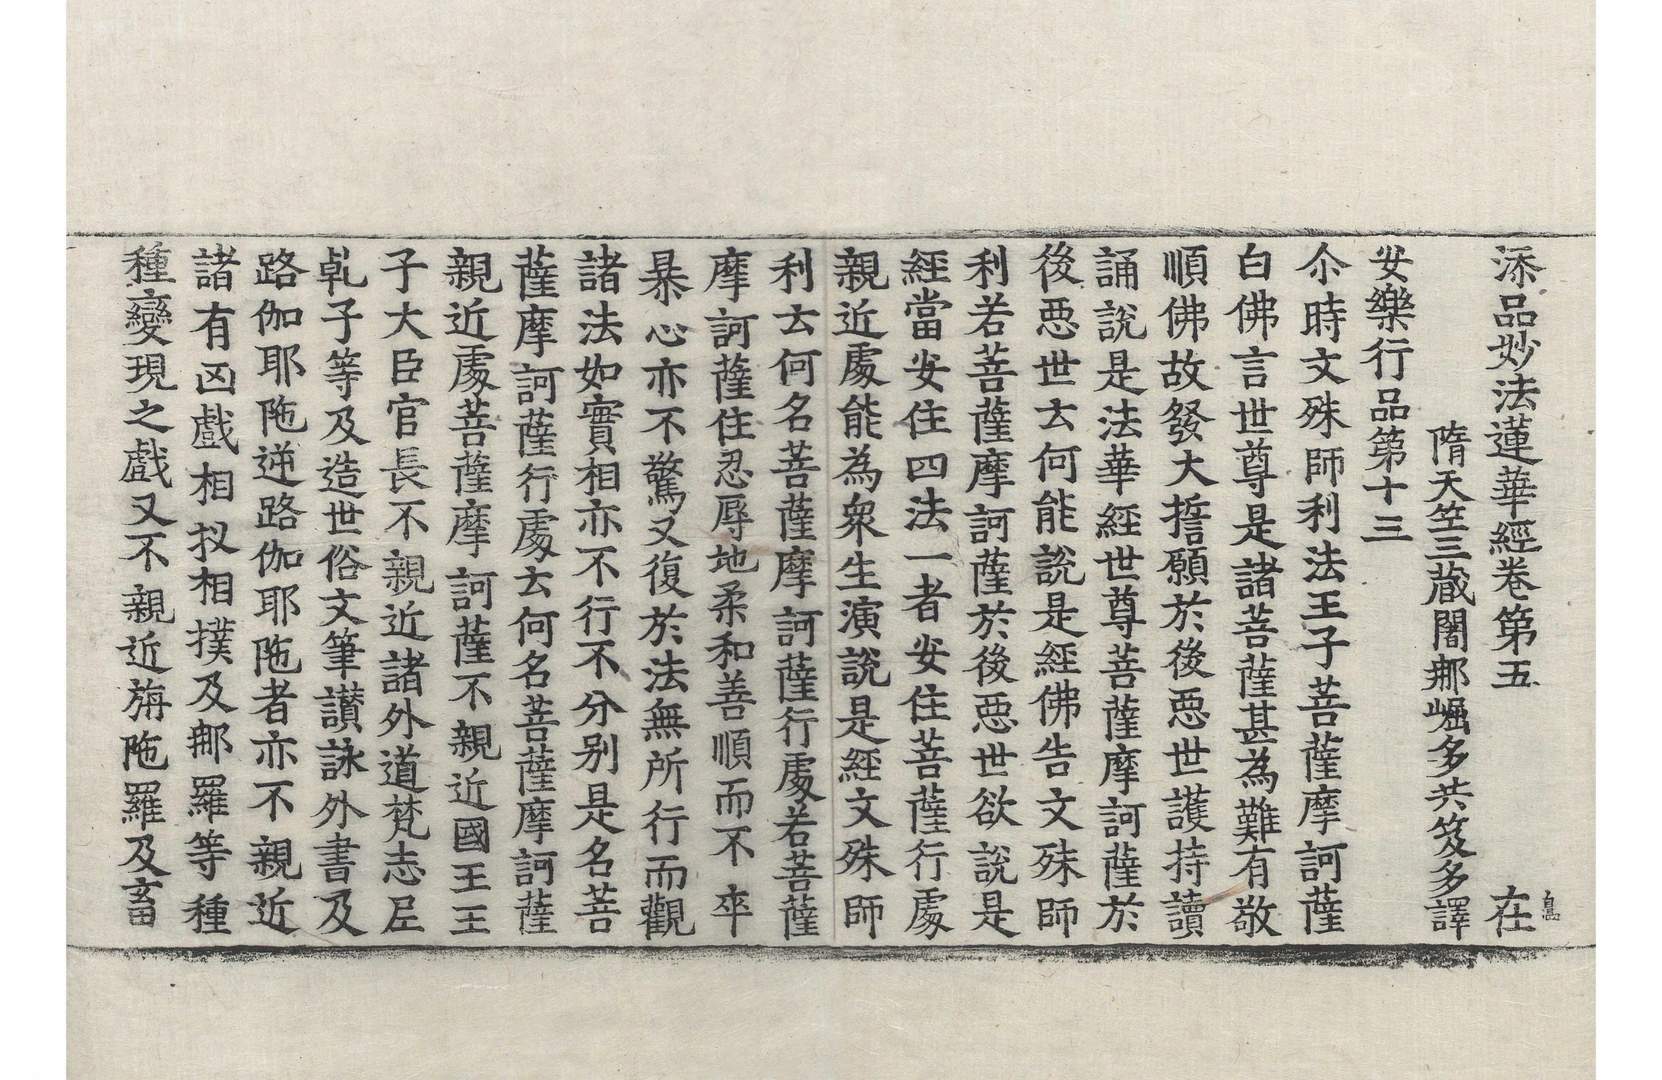 添品妙法蓮華經卷第五 在
隋天竺三藏闍那崛多共笈多譯
安樂行品第十三
尒時文殊師利法王子菩薩摩訶薩
白佛言世尊是諸菩薩甚為難有敬
順佛故發大誓願於後惡世護持讀
誦說是法華經世尊菩薩摩訶薩於
後惡世云何能說是經佛告文殊師
利若菩薩摩訶薩於後惡世欲說是
經當安住四法一者安住菩薩行處
親近處能為衆生演說是經文殊師
利云何名菩薩摩訶薩行處若菩薩
摩訶薩住忍辱地柔和善順而不卒
暴心亦不驚又復於法無所行而觀
諸法如實相亦不行不分別是名菩
薩摩訶薩行處云何名菩薩摩訶薩
親近處菩薩摩訶薩不親近國王王
子大臣官長不親近諸外道梵志尼
乹子等及造世俗文筆讃詠外書及
路伽耶陁逆路伽耶陁者亦不親近
諸有凶戲相扠相撲及那羅等種
種變現之戲又不親近旃陁羅及畜